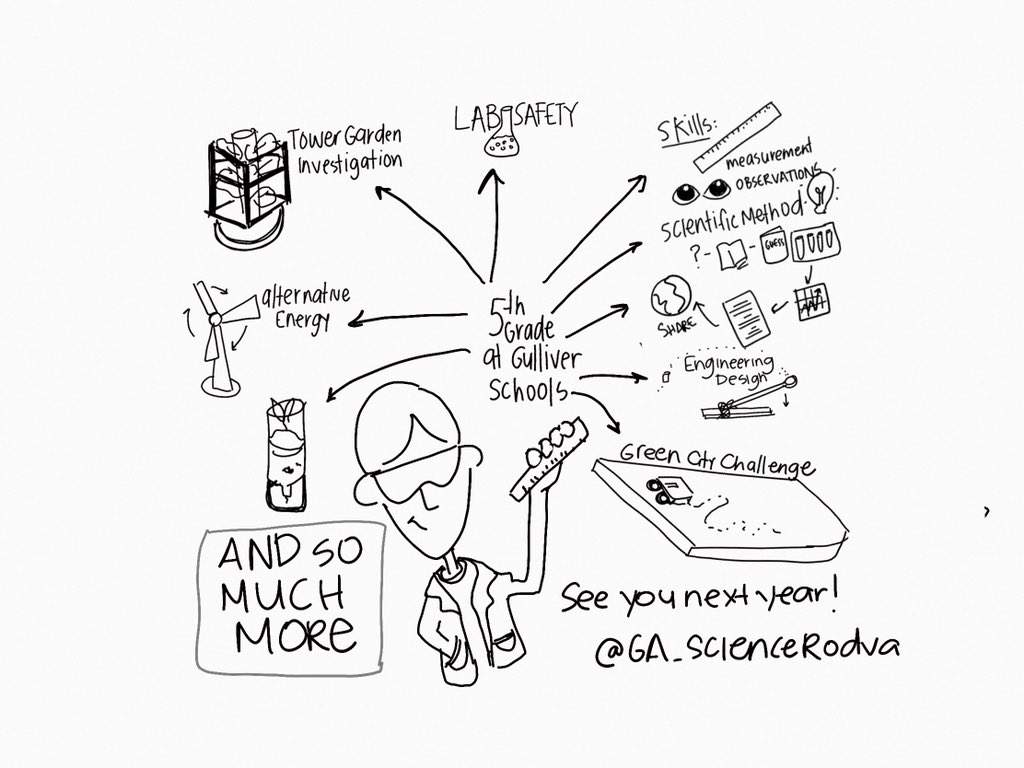 LAB SAFETY
Tower Garden
Investigation
Skills:
measurement
OBSERVATIONS
Scientific Method
?
GUESS
SHARE
alternative
Energy
5th
Grade
at Gulliver
Schools
Engineering
Design
Green City Challenge
AND SO
MUCH
MORE
See you next year!
@GA_ScienceRodva